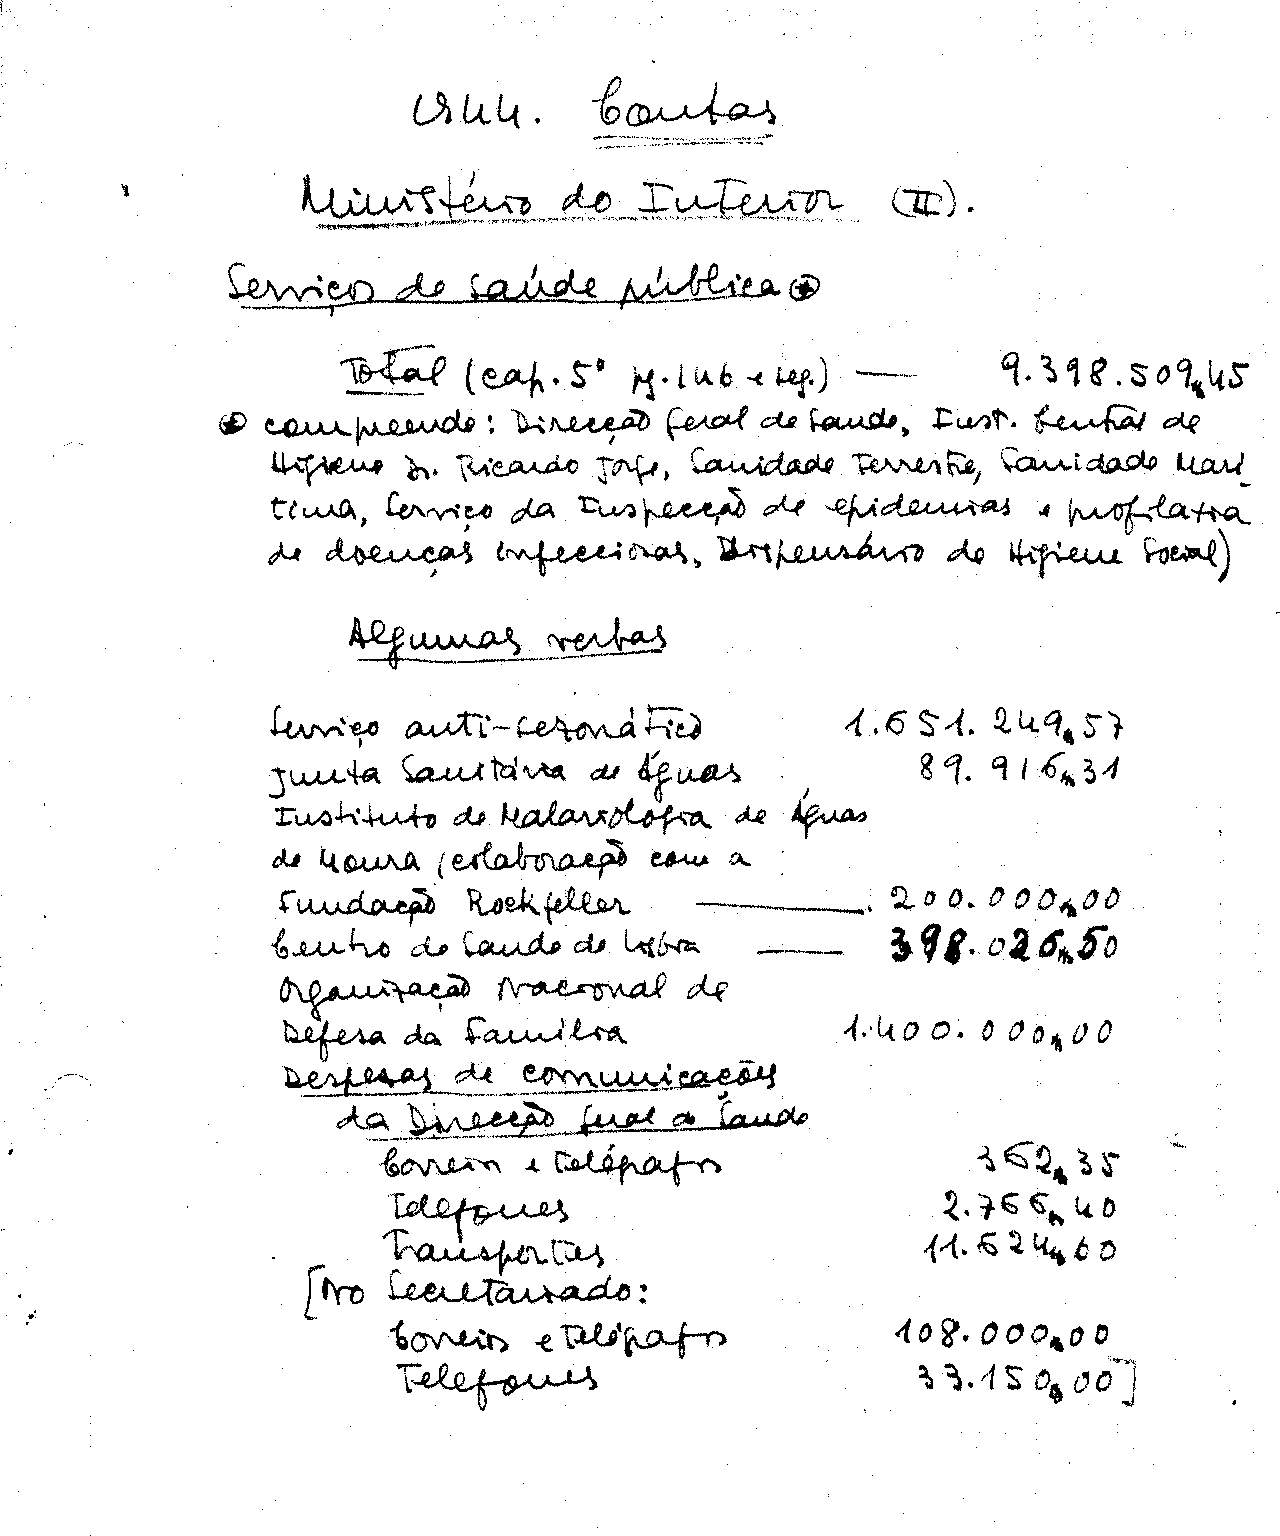 1944. Contas
Ministério do Interior (II).
Serviços de saúde pública ⊛
Total (cap. 5º pg. 146 e seg.) — 9.398.509$45
⊛ compreende: Direcção Geral de Saude, Inst. Central de
Higiene Dr. Ricardo Jorge, Sanidade Terrestre, Sanidade Marí
tima, Serviço da Inspecção de epidemias e profilaxia
de doenças infecciosas, Dispensário de Higiene Social)
Algumas verbas
Serviço anti-sezonático 1.651.249$57
Junta Sanitária de Águas 89.916$31
Instituto de Malariologia de Águas
de Moura (colaboração com a
Fundação Rockfeller — 200.000$00
Centro de Saude de Lisboa — 398.026$50
Organização Nacional de
Defesa da Família 1.400.000$00
Despesas de comunicações
da Direcção Geral de Saude
Correios e telégrafos 362$35
Telefones 2.766$40
Transportes 11.624$60
[No Secretariado:
Correios e telégrafos 108.000$00
Telefones 33.150$00]